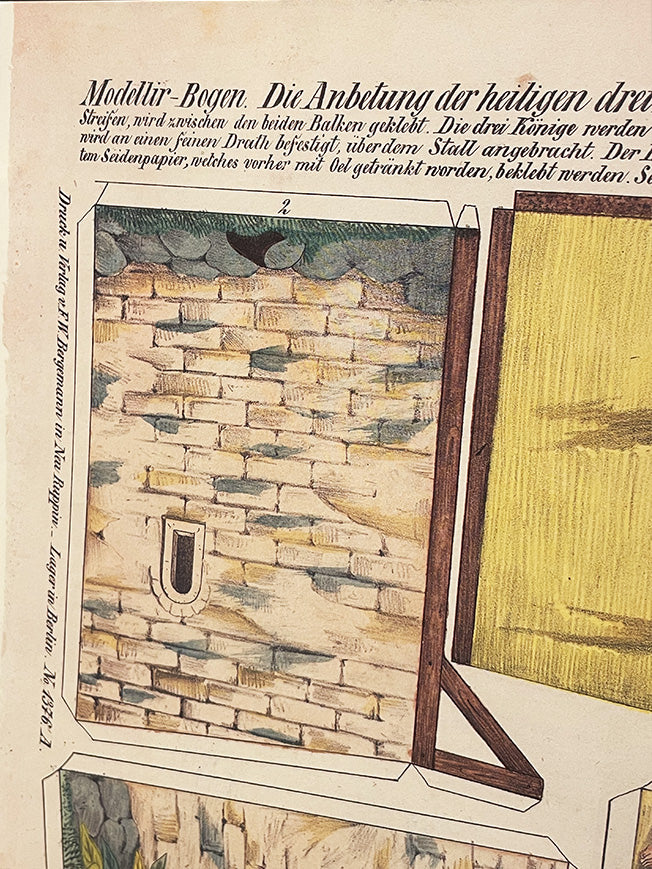 Modellir-Bogen. Die Anbetung der heiligen drei
Streifen, wird zwischen den beiden Balken geklebt. Die drei Könige werden
wird an einen feinen Drath befestigt, über dem Stall angebracht. Der
tem Seidenpapier, welches vorher mit Oel getränkt worden, beklebt werden. Se
2
Druck u. Verlag v. F. W. Bergemann in Neu Ruppin. – Lager in Berlin. No 1376. A.